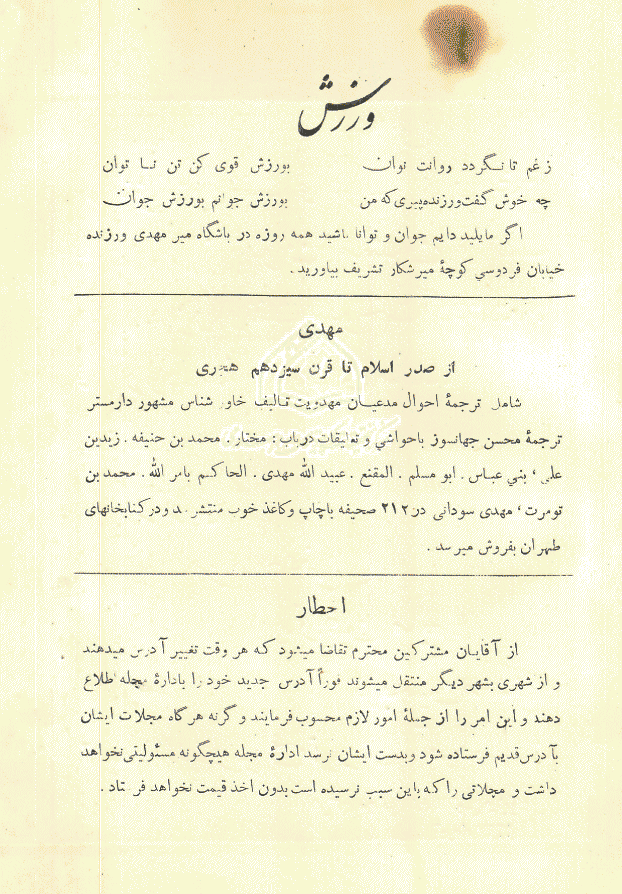 ورزش
ز غم تا نگردد روانت نوان بورزش قوی کن تن نا توان
چه خوش گفت ورزنده پیری که من بورزش جوانم بورزش جوان
اگر مایلید دایم جوان و توانا باشید همه روزه در باشگاه میر مهدی ورزنده
خیابان فردوسی کوچهٔ میرشکار تشریف بیاورید .
مهدی
از صدر اسلام تا قرن سیزدهم هجری
شامل ترجمهٔ احوال مدعیان مهدویت تالیف خاور شناس مشهور دارمستر
ترجمهٔ محسن جهانسوز باحواشی و تعلیقات در باب : مختار . محمد بن حنیفه . زیدبن
علی ، بنی عباس . ابو مسلم . المقنع . عبید الله مهدی . الحاکم بامر الله . محمد بن
تومرت ، مهدی سودانی در ۲۱۲ صحیفه باچاپ وکاغذ خوب منتشر شد و در کتابخانهای
طهران بفروش میرسد .
احطار
از آقایان مشترکین محترم تقاضا میشود که هر وقت تغییر آدرس میدهند
و از شهری بشهر دیگر منتقل میشوند فوراً آدرس جدید خود را بادارهٔ مجله طلاع
دهند و این امر را از جملهٔ امور لازم محسوب فرمایند و گرنه هر گاه مجلات ایشان
بآدرس قدیم فرستاده شود وبدست ایشان نرسد ادارهٔ مجله هیچگونه مسئولیتی نخواهد
داشت و مجلاتی را که باین سبب نرسیده است بدون اخذ قیمت نخواهد فرستاد .